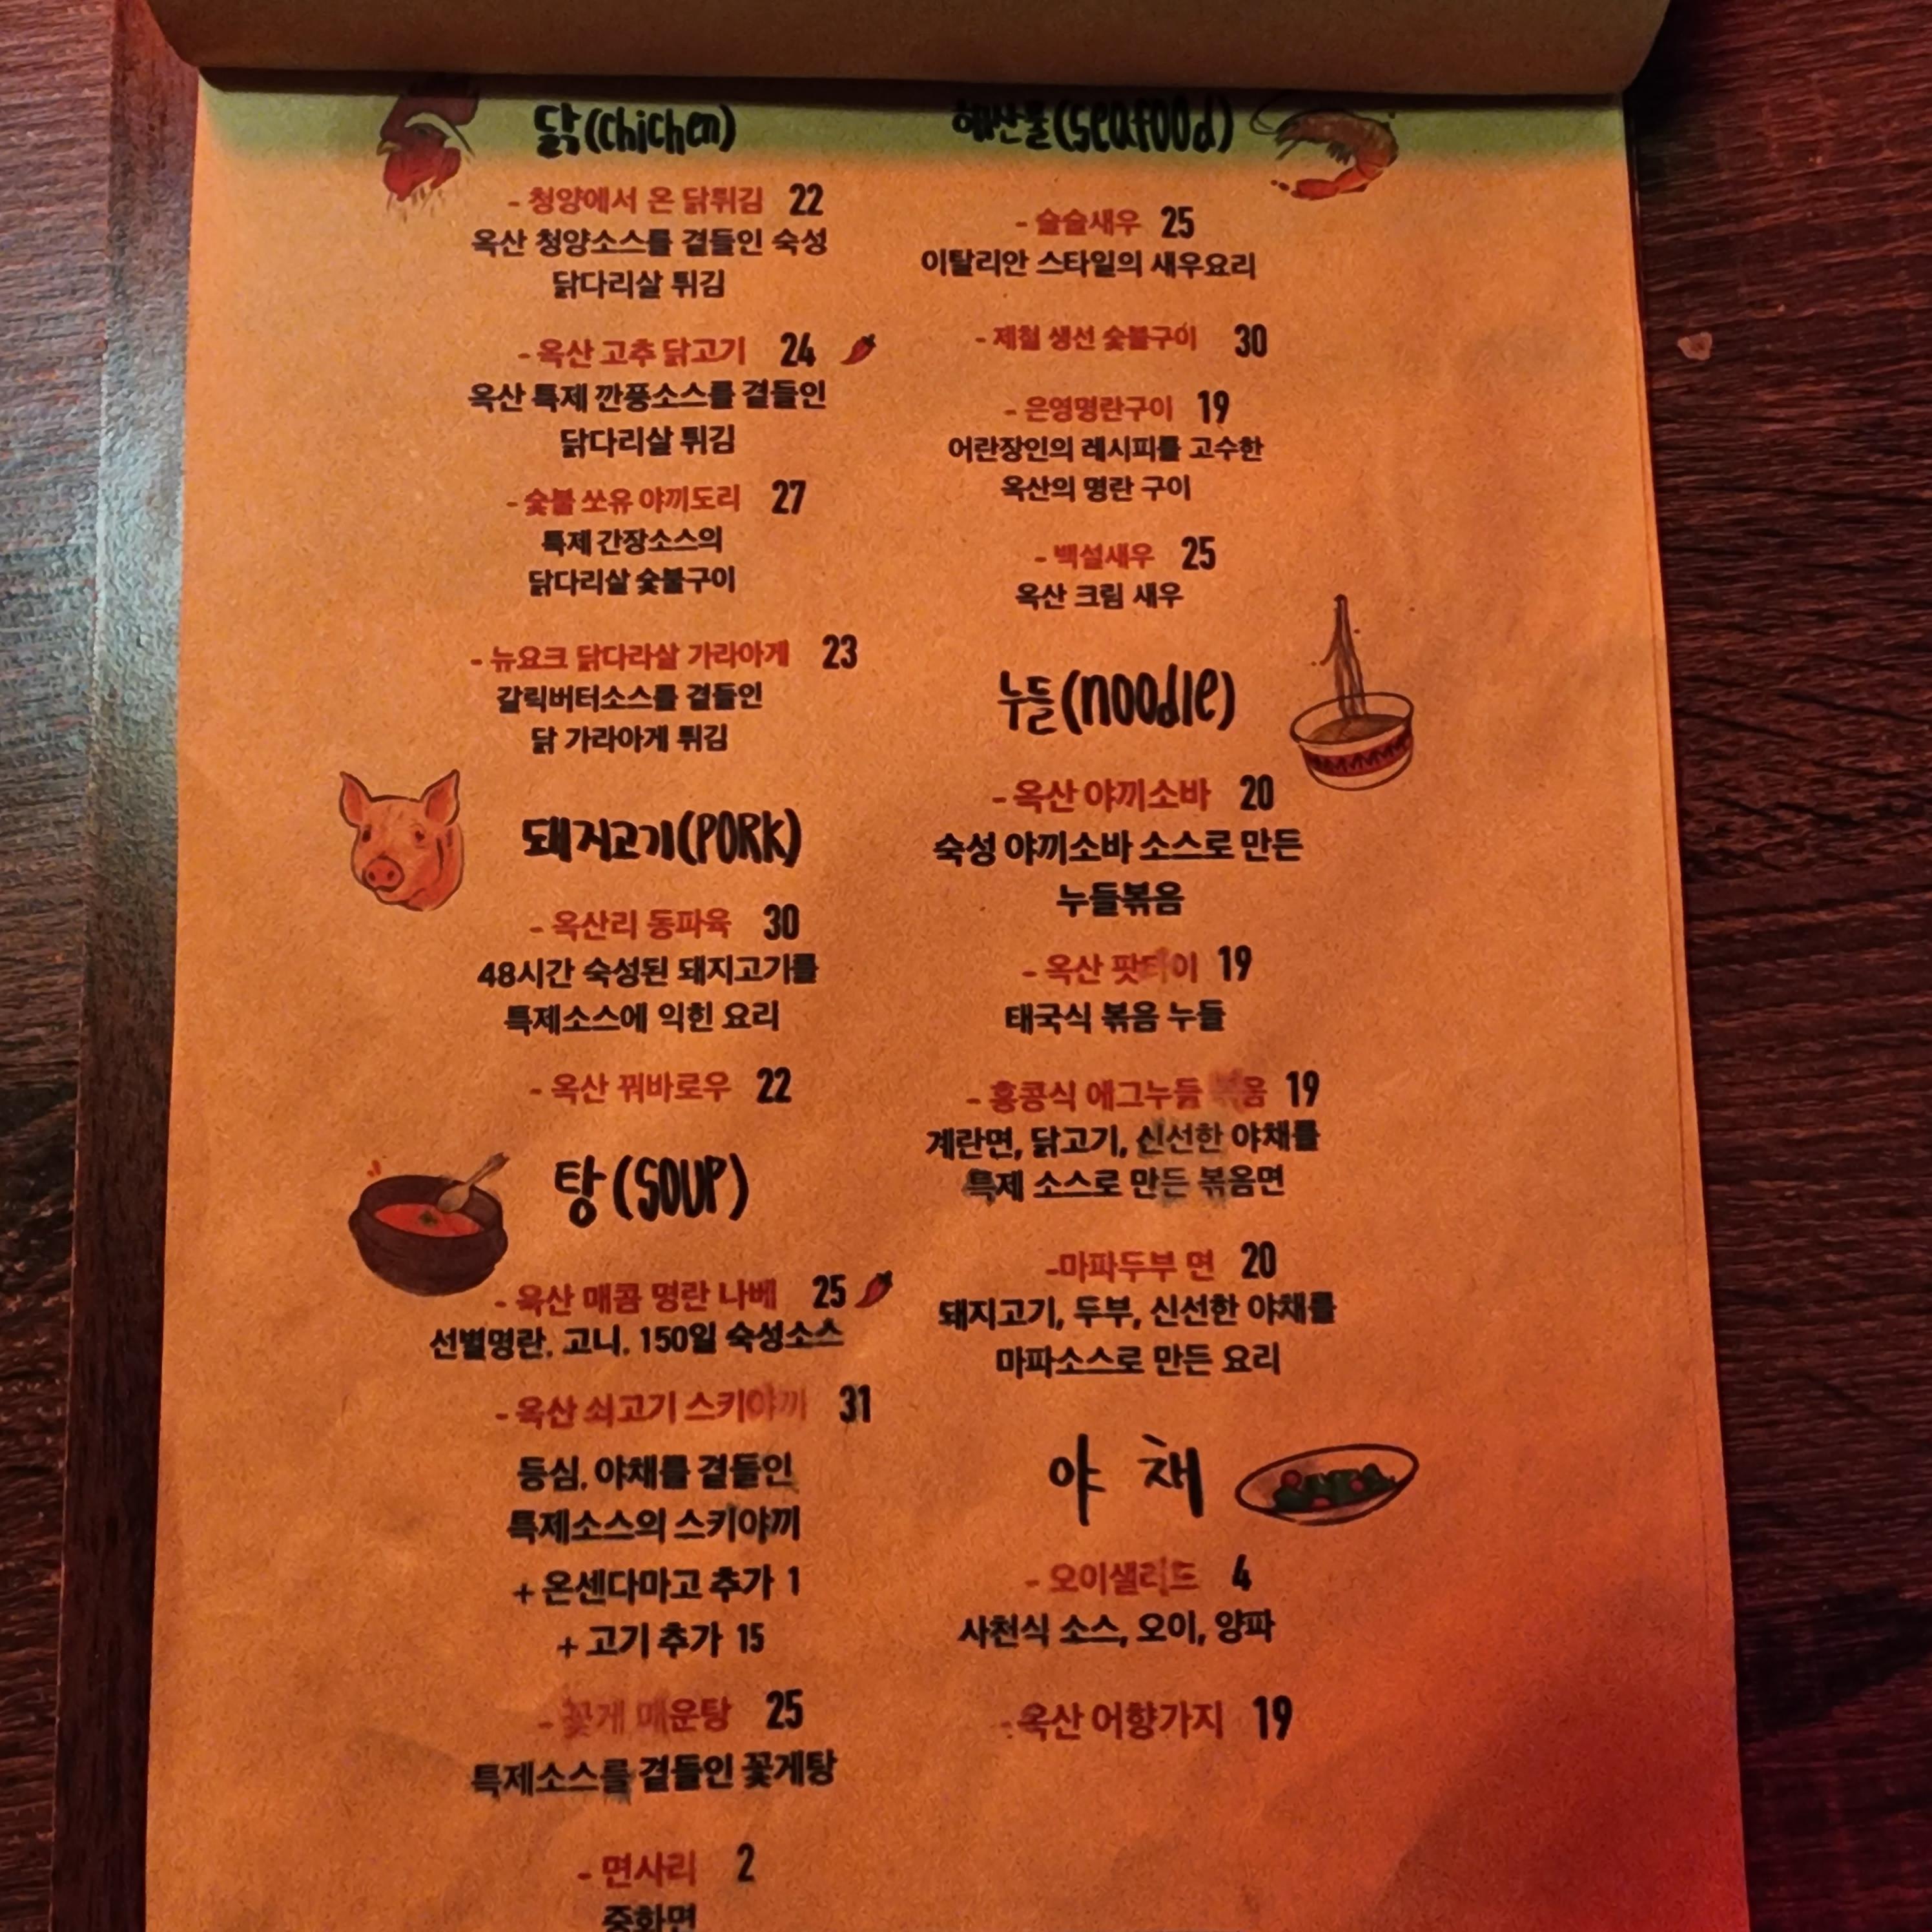 닭(chichen)
- 청양에서 온 닭튀김 22
옥산 청양소스를 곁들인 숙성
닭다리살 튀김
- 옥산 고추 닭고기 24
옥산 특제 깐풍소스를 곁들인
닭다리살 튀김
- 숯불 쏘유 야끼도리 27
특제 간장소스의
닭다리살 숯불구이
- 뉴요크 닭다라살 가라아게 23
갈릭버터소스를 곁들인
닭 가라아게 튀김
돼지고기(PORK)
- 옥산리 동파육 30
48시간 숙성된 돼지고기를
특제소스에 익힌 요리
- 옥산 꿔바로우 22
탕(SOUP)
- 옥산 매콤 명란 나베 25
선별명란, 고니, 150일 숙성소스
- 옥산 쇠고기 스키야끼 31
등심, 야채를 곁들인
특제소스의 스키야끼
+ 온센다마고 추가 1
+ 고기 추가 15
- 꽃게 매운탕 25
특제소스를 곁들인 꽃게탕
- 면사리 2
중화면
해산물(seafood)
- 슬슬새우 25
이탈리안 스타일의 새우요리
- 제철 생선 숯불구이 30
- 은영명란구이 19
어란장인의 레시피를 고수한
옥산의 명란 구이
- 백설새우 25
옥산 크림 새우
누들(noodle)
- 옥산 야끼소바 20
숙성 야끼소바 소스로 만든
누들볶음
- 옥산 팟타이 19
태국식 볶음 누들
- 홍콩식 애그누들 볶음 19
계란면, 닭고기, 신선한 야채를
특제 소스로 만든 볶음면
-마파두부 면 20
돼지고기, 두부, 신선한 야채를
마파소스로 만든 요리
야 채
- 오이샐러드 4
사천식 소스, 오이, 양파
- 옥산 어향가지 19